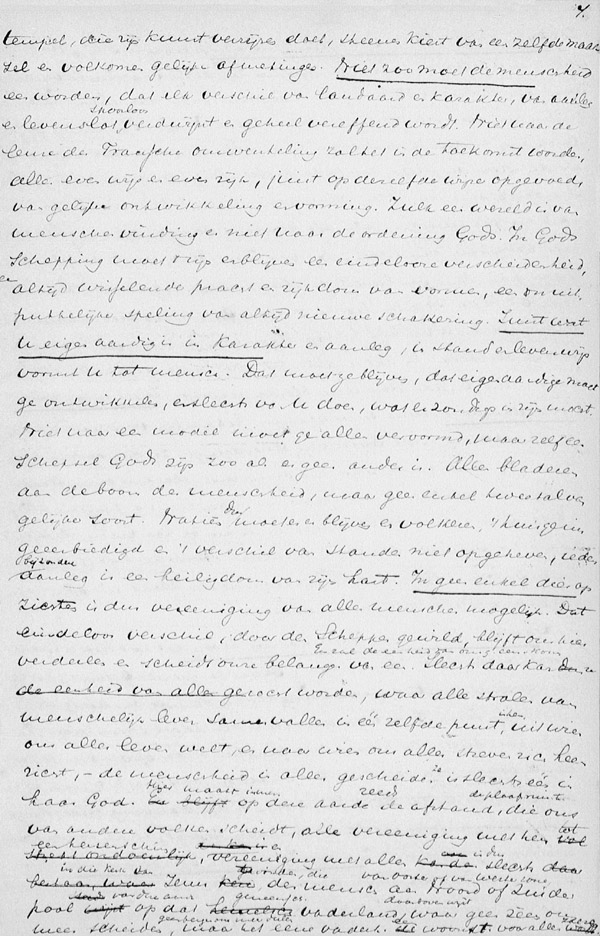 7.
tempel, die zijn kunst verrijzen doet, steenen kiest van een zelfde maak-
sel en volkomen gelijke afmetingen. Niet zoo moet de menschheid
een worden, dat elk verschil van landaard en karakter, van aanleg
spoorloos
en levenslot, verdwijnt en geheel vereffend wordt. Niet naar de
leuze der Fransche omwenteling zal het in de toekomst worden,
allen even wijs en even rijk, juist op dezelfde wijze opgevoed,
van gelijke ontwikkeling en vorming. Zulk een wereld is van
menschen vinding en niet naar de ordening Gods. In Gods
schepping moet zijn en blijven een eindelooze verscheidenheid,
en altijd wisselende pracht en rijkdom van vormen, een onuit-
puttelijke speling van altijd nieuwe schakering. Juist wat
u eigenaardig is in karakter en aanleg, in stand en levenswijs
vormt u tot mensch. Dat moet ge blijven, dat eigenaardige moet
ge ontwikkelen, en slechts van u doen, wat er zondigs in zijn mocht.
Niet naar een model moet ge allen vervormd, maar zelf een
schepsel Gods zijn zoo als er geen ander is. Allen bladeren
aan de boom der menschheid, maar geen enkel tweetal van
gelijke soort. Natiën moeten er blijven en volkeren, 't huisgezin
geeerbiedigd en 't verschil van standen niet opgeheven, ieders
bijzondere
aanleg is een heiligdom van zijn hart. In geen enkel dier op-
zichten is dus vereeniging van alle menschen mogelijk. Dat
eindeloos verschil, door den Schepper gewild, blijft ons hier
verdeelen en scheidt onze belangen van een. Slechts daar kan
de eenheid van allen gezocht worden, waar alle stralen van
menschelijk leven samenvallen in één zelfde punt, uit wien
ons aller leven welt, en naar wien ons aller streven zich heen
richt, – de menschheid in alles gescheiden is slechts één in
haar God. op deze aarde de afstand, die ons
van andere volken scheidt, alle vereeniging met hen tot
een hersenschim, vereeniging met allen is slechts
in die kerk van Jezus den mensch aan Noord of Zuider
pool op dat vaderland, waar geen zee ons
meer scheidt, maar het eene vaderhuis woont voor allen